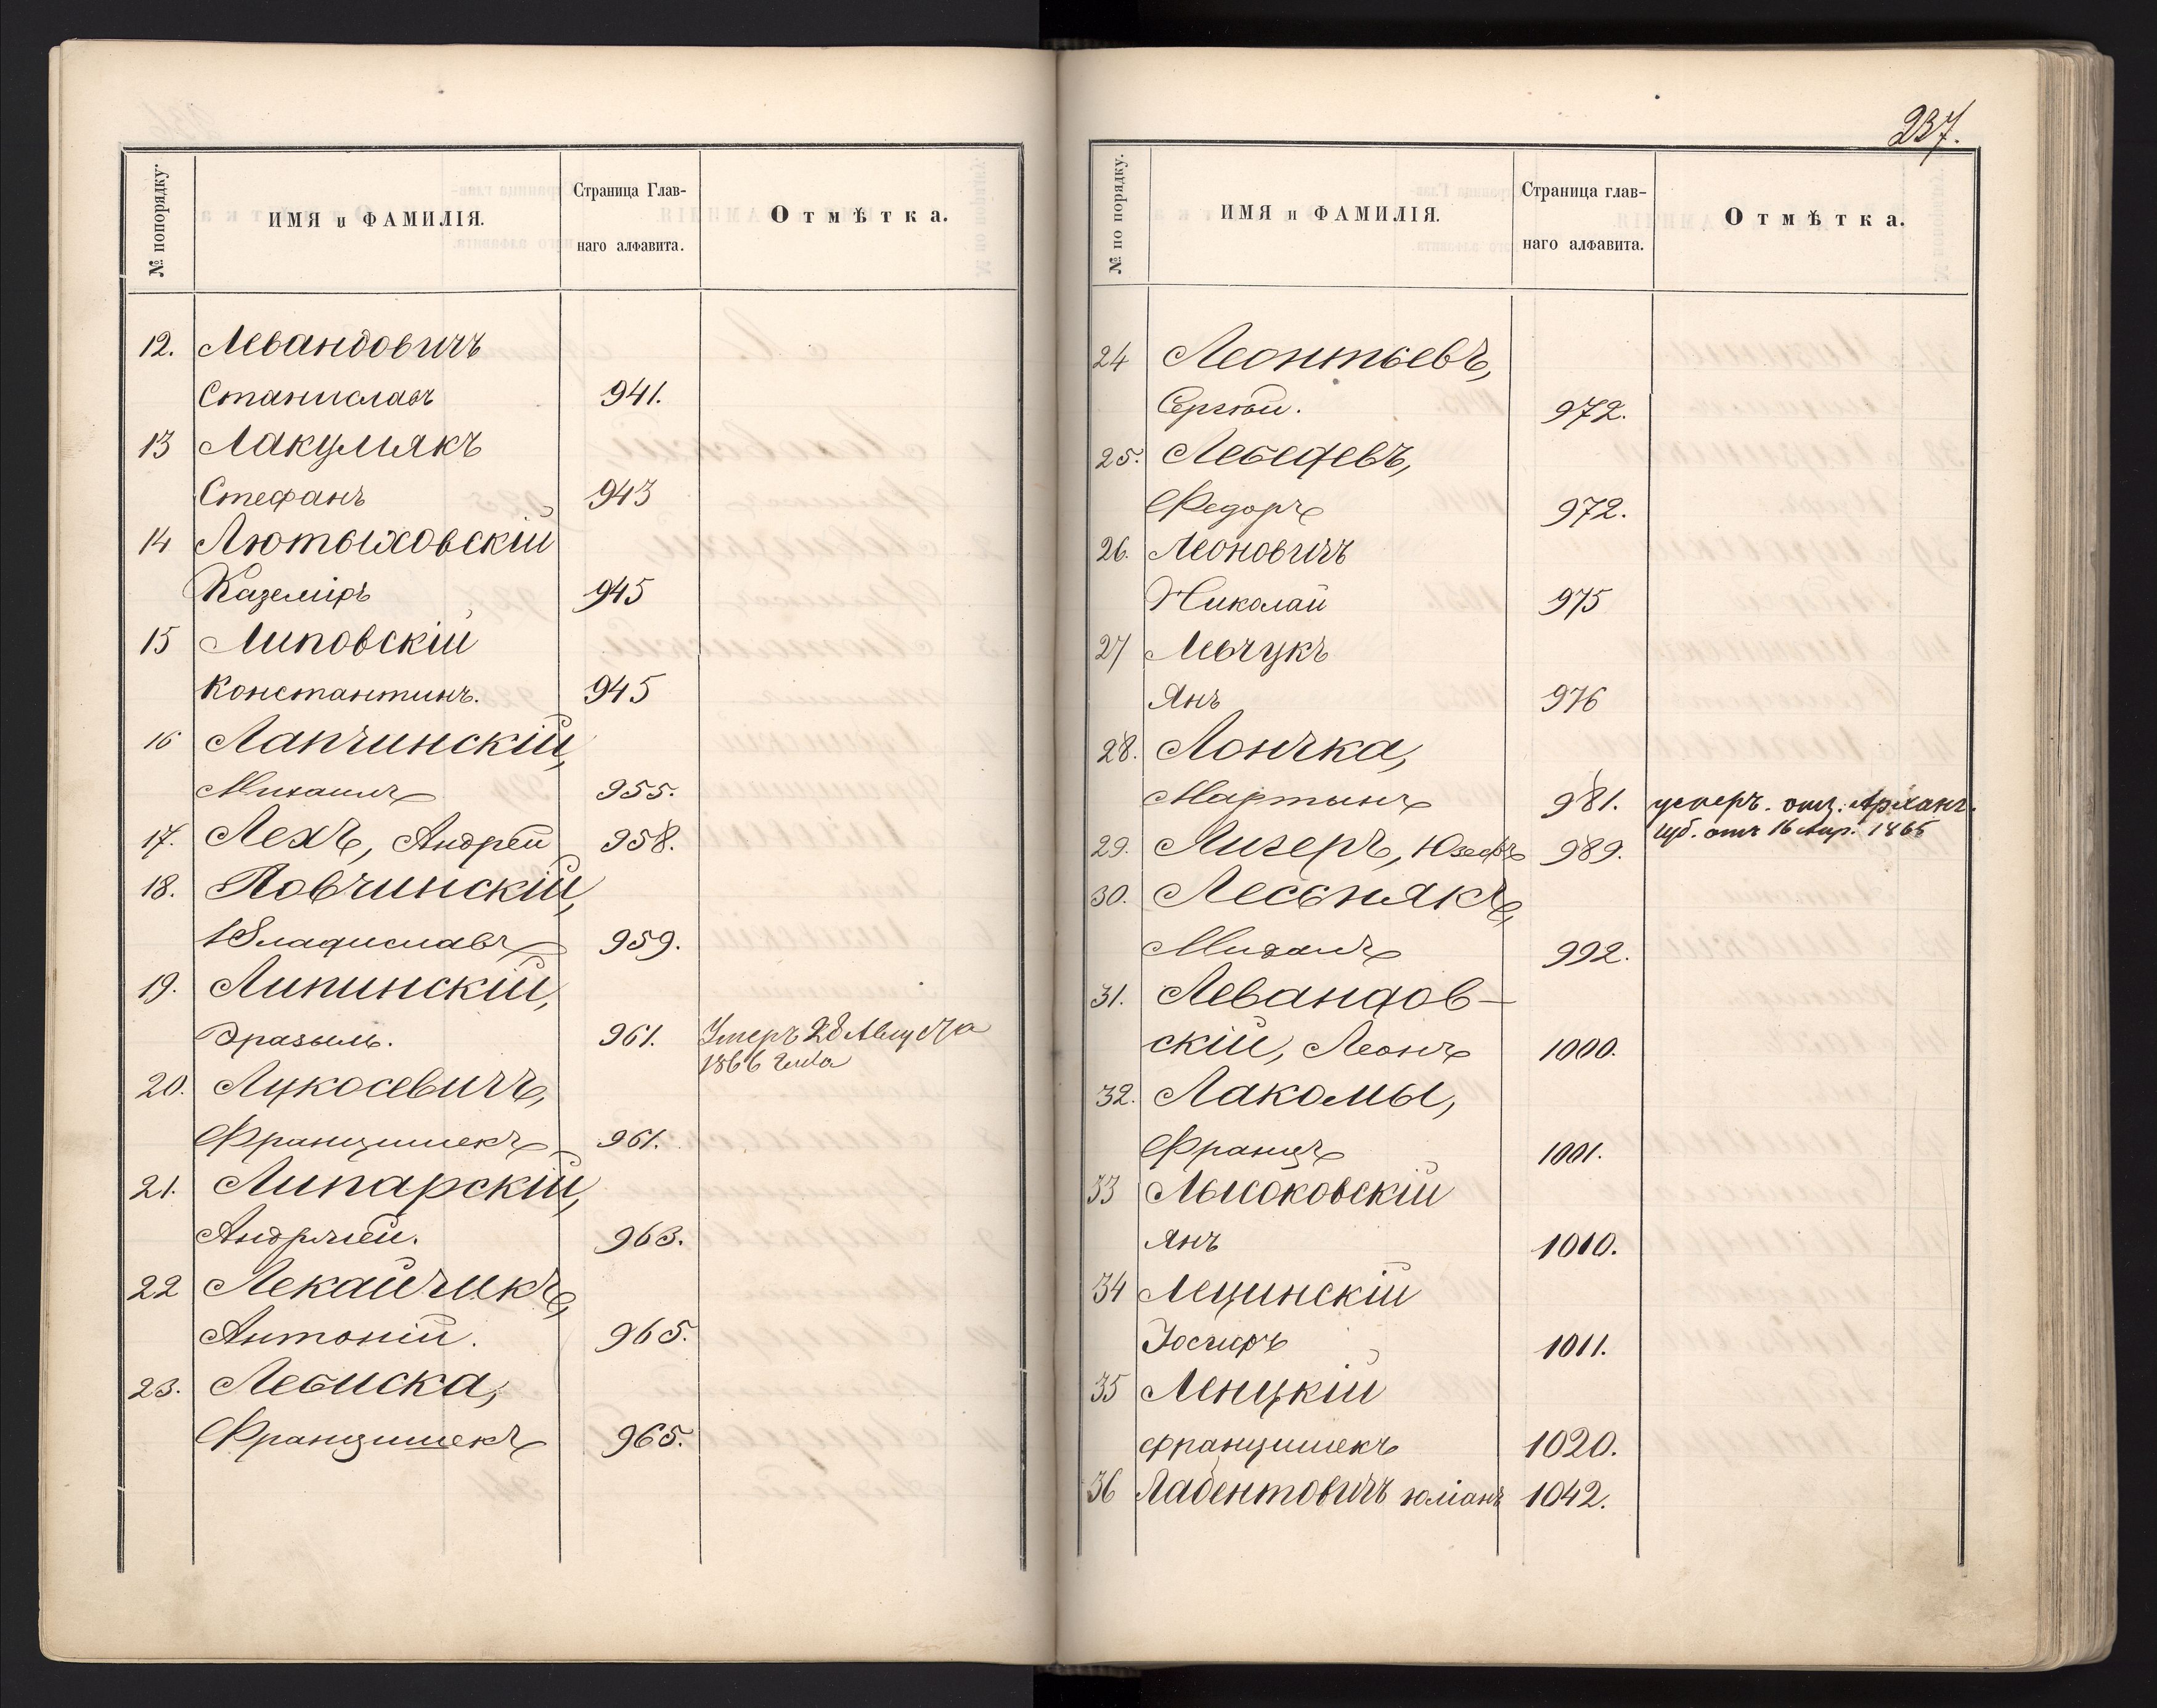 № попорядку.
ИМЯ и ФАМИЛІЯ.
Страница Глав-
наго алфавита.
Отмѣтка.
12. Левандовичъ
Станиславъ 941.
13 Лакумякъ
Стефанъ 943
14 Лютыховскій
Каземіръ 945
15 Липовскій
Константинъ. 945
16 Лапчинскій,
Михаилъ 955.
17. Лехъ, Андрей 958.
18. Ловчинскій,
Владиславъ 959.
19. Липинскій,
Эразыль. 961. Умеръ 28 Августа
1866 года
20. Лукосевичъ,
Францишекъ 961.
21. Липарскій,
Андржей. 963.
22 Лекайчикъ,
Антоній. 965.
23. Лебиска,
Францишекъ 965.
237.
№ по порядку.
ИМЯ и ФАМИЛІЯ.
Страница глав-
наго алфавита.
Отмѣтка.
24 Леонтьевъ,
Сергѣй. 972.
25. Лебедевъ,
Федоръ 972.
26. Леоновичъ
Николай 975
27 Левчукъ
Янъ 976
28. Лончка,
Мартынъ 981. умеръ. отз. Арханг.
Губ. отъ 16 Апр. 1866
29. Лигеръ, Юзефъ 989.
30. Лесснякъ,
Михалъ 992.
31. Левандов-
скій, Леонъ 1000.
32. Лакомы,
Францъ 1001.
33 Лысоковскій
Янъ 1010.
34 Лещинскій
Іосифъ 1011.
35 Ленцкій
Францишекъ 1020.
36 Ладентовичъ юліанъ 1042.